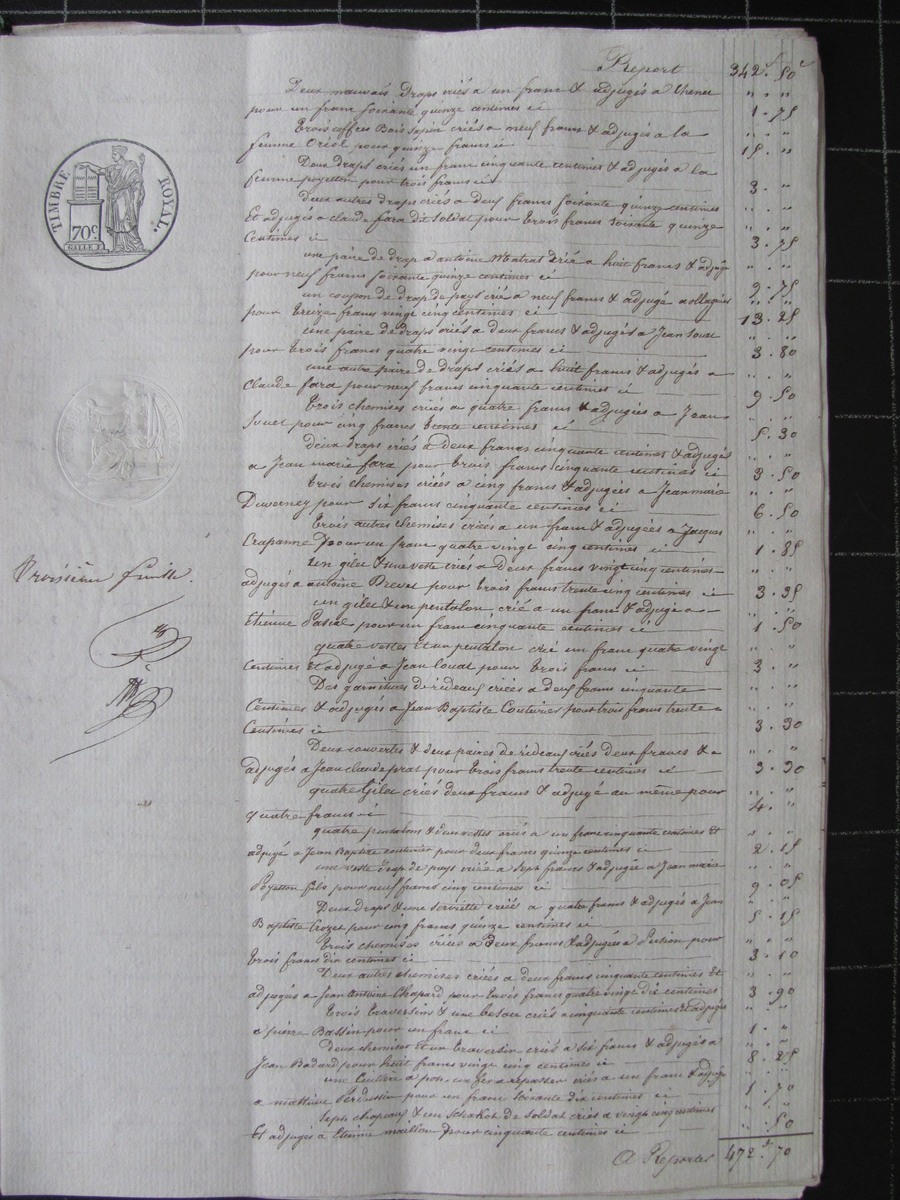 Report 342f. 50c
Deux mauvais draps criés a un franc & adjugés a " "
pour un franc soixante quinze centimes ci 1. 75
Trois coffres Bois sapin criés a neuf francs & adjugés a la " "
femme Oriol pour quinze francs ci 15. "
Deux draps criés un franc cinquante centimes & adjugés a la " "
femme poyetton pour trois francs ci 3. "
deux autres draps criés a deux francs soixante quinze centimes " "
Et adjugés a claude fara dit soldat pour trois francs soixante quinze
Centimes ci 3. 75
TIMBRE ROYAL.
70c
une paire de drap a antoine Matrat crié a huit francs & adjugé " "
pour neuf francs soixante quinze centimes ci 9. 75
un coupon de drap de pays criés a neuf francs & adjugé a " "
pour treize francs vingt cinq centimes ci 13. 25
une paire de draps criés a deux francs & adjugés a Jean " "
pour trois francs quatre vingt centimes ci 3. 80
une autre paire de draps criés a huit francs & adjugés a " "
Claude fara pour neuf francs cinquante centimes ci 9. 50
trois chemises criés a quatre francs & adjugées a Jean " "
pour cinq francs trente centimes ci 5. 30
deux draps criés a deux francs cinquante centimes & adjugés " "
a Jean marie fara pour trois francs cinquante centimes ci 3. 50
trois chemises criées a cinq francs & adjugées a Jean marie " "
Duvernez pour six francs cinquante centimes ci 6. 50
trois autres chemises criées a un franc & adjugées a Jacques " "
Crapanne pour un franc quatre vingt cinq centimes ci 1. 85
un gilet & une veste criés a deux francs vingt cinq centimes " "
adjugés a antoine Brevet pour trois francs trente cinq centimes ci 3. 35
un gilet & un pentalon crié a un franc & adjugé a " "
Etienne Pascal pour un franc cinquante centimes ci 1. 50
quatre vestes Et un pentalon crié un franc quatre vingt " "
Centimes Et adjugé a Jean louat pour trois francs ci 3. "
Des garnitures de rideaux criées a deux francs cinquante " "
Centimes & adjugés a Jean Baptiste Couturier pour trois francs trente
Centimes ci 3. 30
Deux couvertes & deux paires de rideaux criés deux francs & " "
adjugés a Jean claude prat pour trois francs trente centimes ci 3. 30
quatre Gilet criés deux francs & adjugé au même pour " "
quatre francs ci 4. "
quatre pentalons & deux vestes criés a un franc cinquante centimes Et " "
adjugé a Jean Baptiste couturier pour deux francs quinze centimes ci 2. 15
une veste drap de pays criée a sept francs & adjugée a Jean marie " "
Poyetton fils pour neuf francs cinq centimes ci 9. 05
Deux draps & une serviette criés a quatre francs & adjugés a Jean " "
Baptiste Crozet pour cinq francs quinze centimes ci 5. 15
trois chemises criées a deux francs & adjugées a pour " "
trois francs dix centimes ci 3. 10
Deux autres chemises criées a deux francs cinquante centimes Et " "
adjugés a Jean Antoine Chapard pour trois francs quatre vingt dix centimes 3. 90
trois traversins & une besace criés a cinquante centimes & adjugés " "
a pierre Bassin pour un franc ci 1. "
Deux chemises Et un traversin criés a six francs & adjugés a " "
Jean Badard pour huit francs vingt cinq centimes ci 8. 25
une un fer a repasser criés a un franc & adjugé " "
a mathieu pour un franc soixante dix centimes ci 1. 70
sept chapeaux & un Schakot de soldat criés a vingt cinq centimes " "
Et adjugés a Etienne maillon pour cinquante centimes ci ". 50
A Reporter 472f. 70